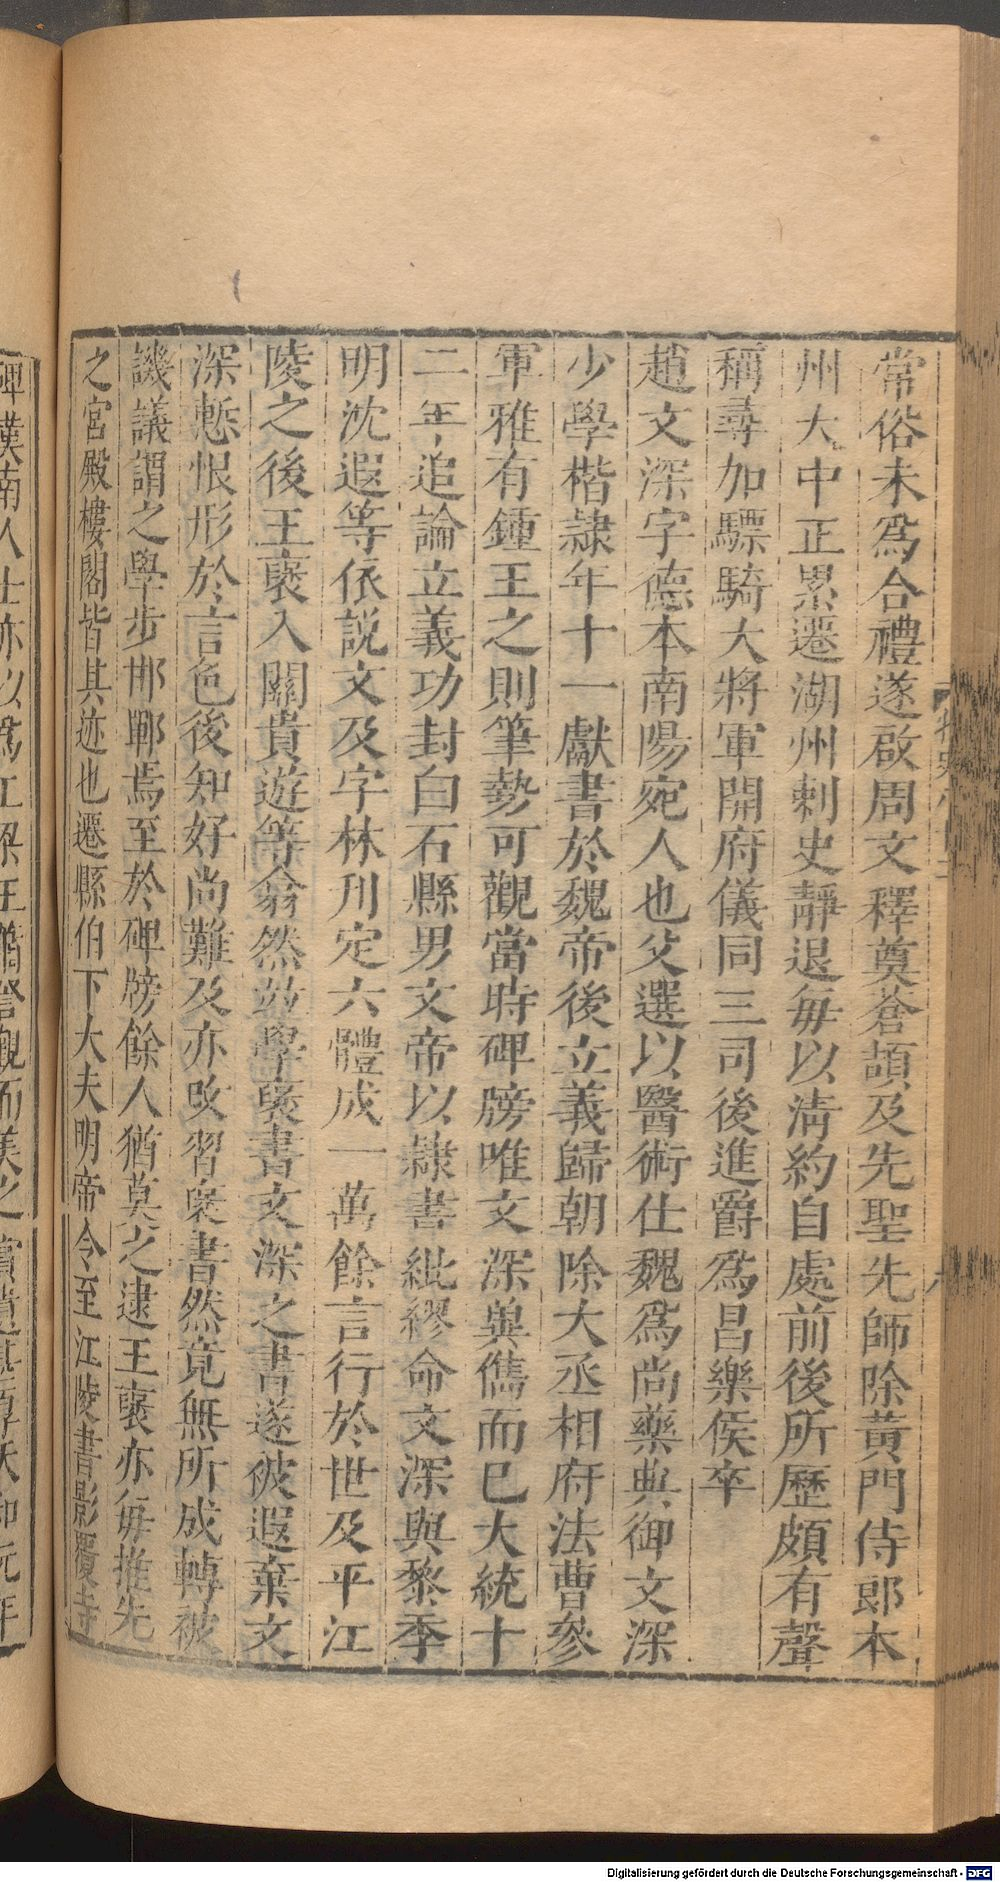 常俗未爲合禮遂啟周文釋奠蒼頡及先聖先師除黃門侍郎本
州大中正累遷湖州刺史靜退每以清約自處前後所歷頗有聲
稱尋加驃騎大將軍開府儀同三司後進爵爲昌樂侯卒
趙文深字德本南陽宛人也父選以醫術仕魏爲尚藥典御文深
少學楷隷年十一獻書於魏帝後立義歸朝除大丞相府法曹參
軍雅有鍾王之則筆勢可觀當時碑牓唯文深與儁而已大統十
二年追論立義功封白石縣男文帝以隷書紕繆命文深與黎季
明沈遐等依説文及字林刋定六體成一萬餘言行於世及平江
陵之後王褒入關貴遊等翕然並學褒書文深之書遂被遐棄文
深慙恨形於言色後知好尚難及亦攺習褒書然竟無所成轉被
譏議謂之學步邯鄲焉至於碑牓餘人猶莫之逮王褒亦每推先
之宮殿樓閣皆其迹也遷縣伯下大夫明帝令至江陵書影覆寺
碑漢南人士亦以爲工梁王蕭詧觀而美之賞遺甚厚天和元年
Digitalisierung gefördert durch die Deutsche Forschungsgemeinschaft - DFG